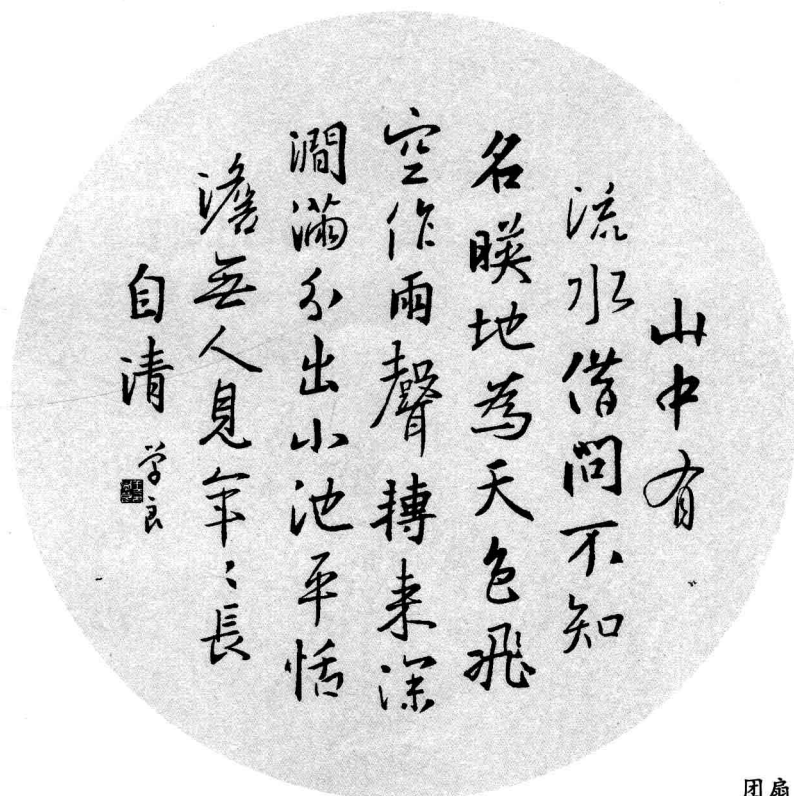 山中有
流水借問不知
名暎地為天色飛
空作雨聲轉来深
澗滿分出小池平恬
澹無人見年〻長
自清
学良
团扇